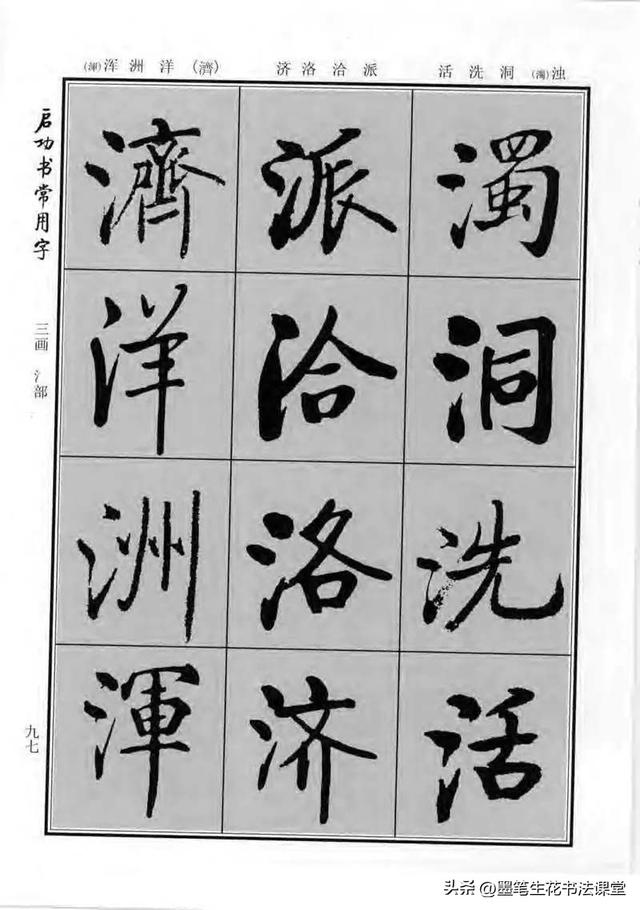 浊(濁)洞洗活 派洽洛济 (濟)洋洲浑(渾)
濁洞洗活
派洽洛济
濟洋洲渾
启功书常用字
三画 氵部
九七
头条 @墨笔生花书法课堂